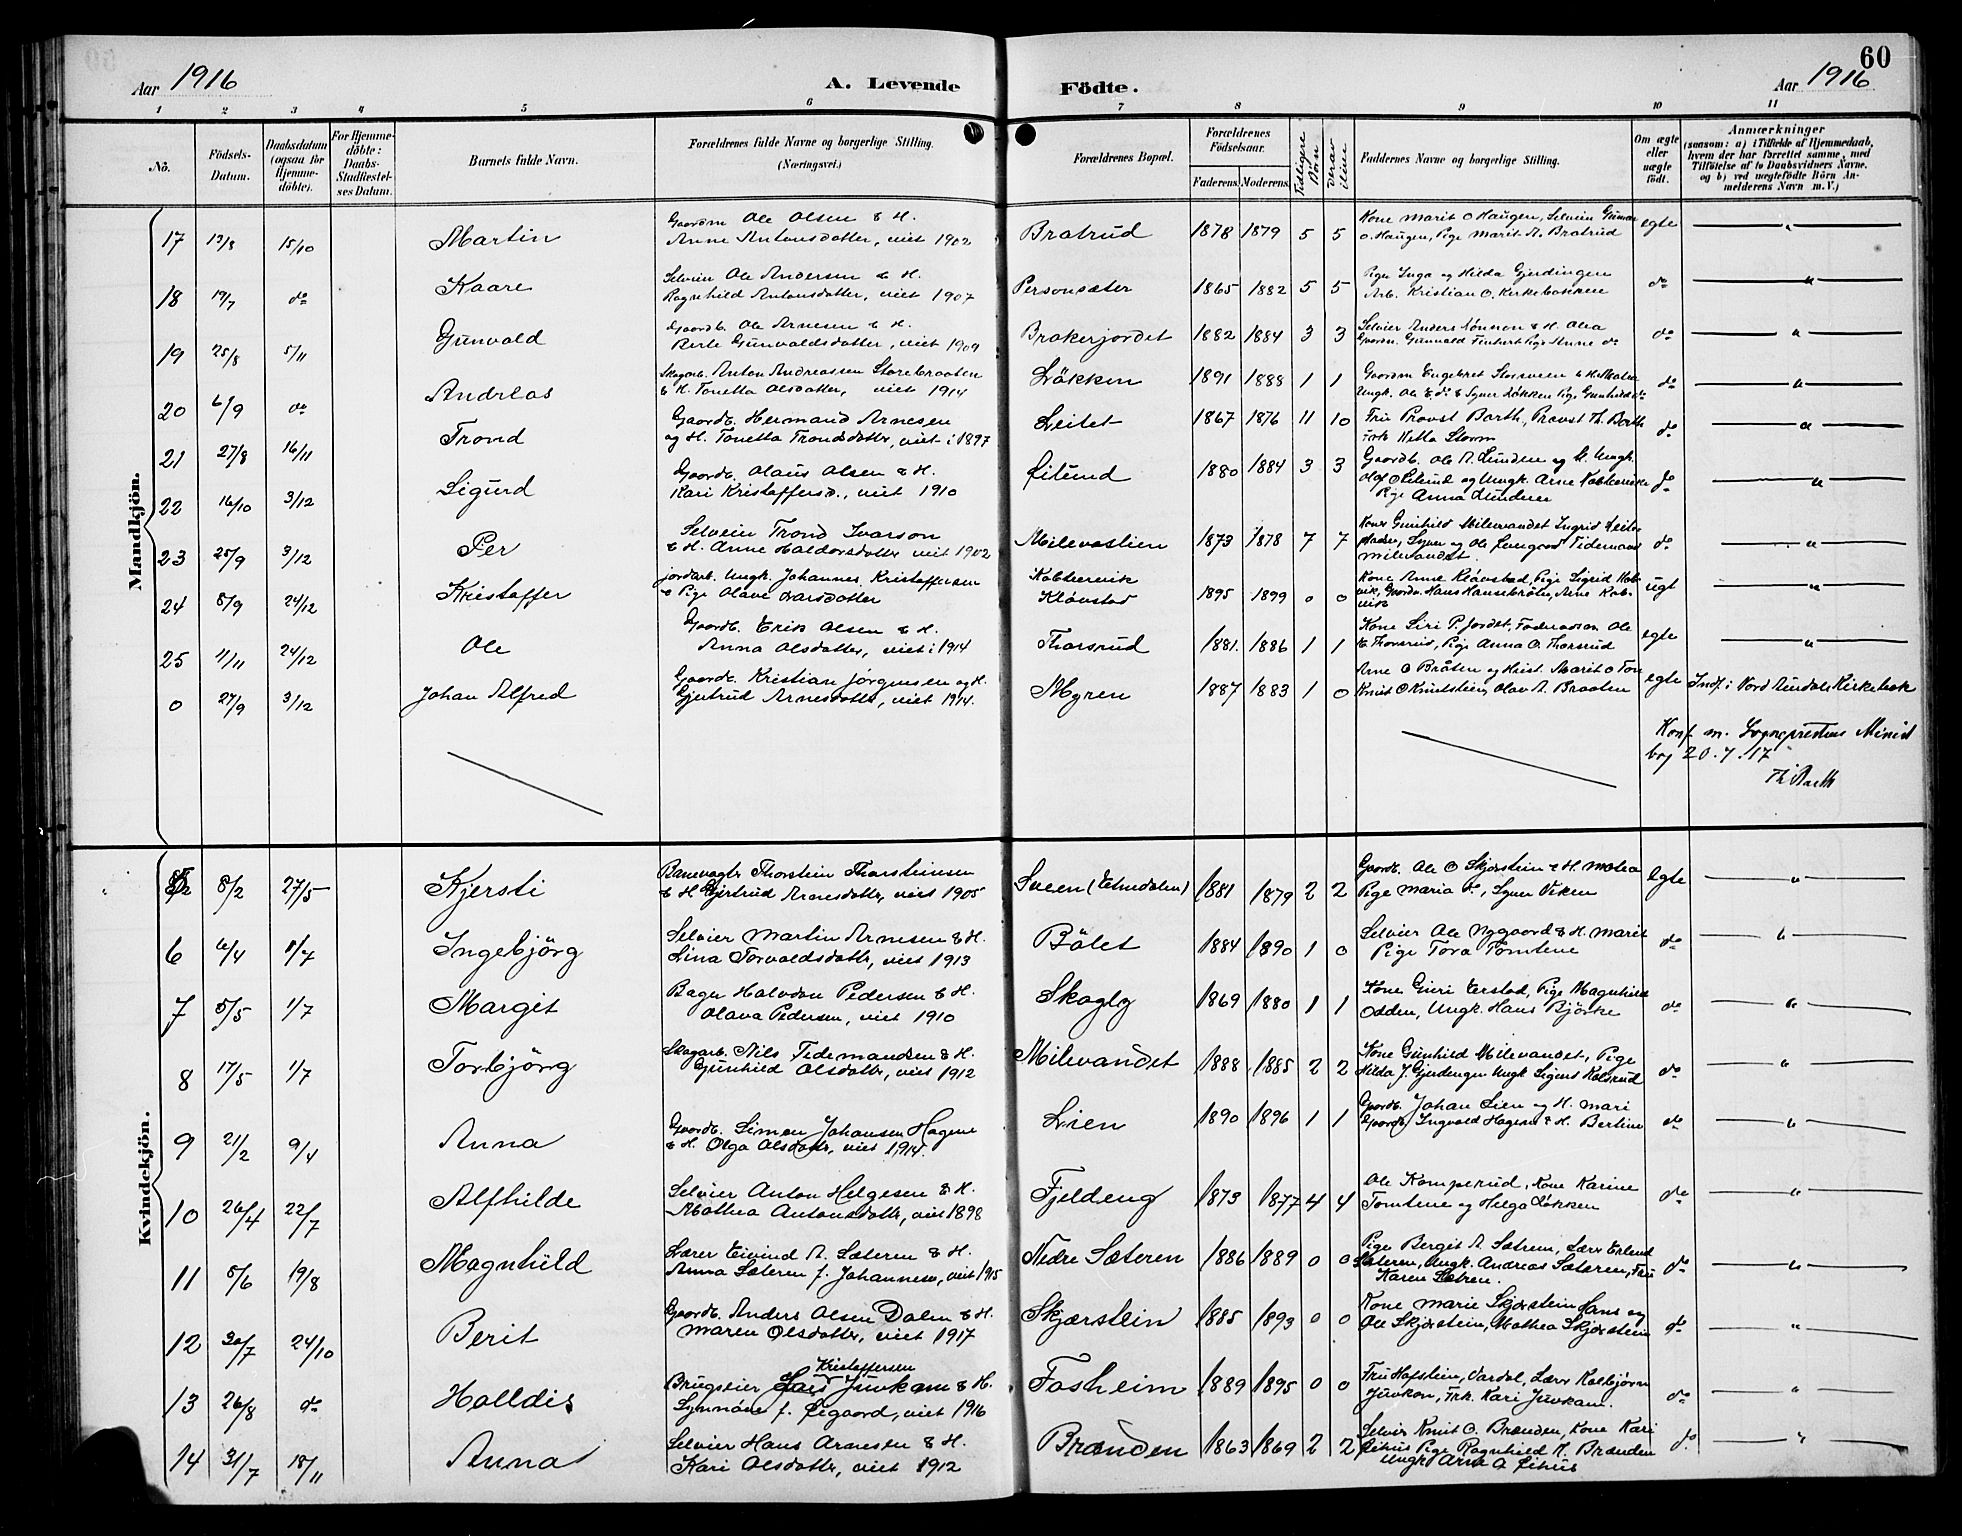 60
Aar 1916
A. Levende
Födte.
Aar 1916
1 2 3 4 5 6 7 8 9 10 11
No.
Födsels-Datum.
Daabsdatum (ogsaa for Hjemmedöbte).
For Hjemmedöbte: Daabs-Stadfæstelses Datum.
Barnets fulde Navn.
Forældrenes fulde Navne og borgerlige Stilling. (Næringsvei.)
Forældrenes Bopæl.
Forældrenes Födselsaar.
Faderens. Moderens.
Tidligere Börn
Derav i live
Faddernes Navne og borgerlige Stilling.
Om ægte eller uægte födt.
Anmærkninger
(saasom: a) i Tilfælde af Hjemmedaab, hvem der har forrettet samme, med Tilföielse af to Daabsvidners Navne. og b) ved uægtefödte Börn Anmelderens Navn m. V.)
Mandkjön.
17 12/8 15/10 Martin Gaardm Ole Olsen & H. Anne Antonsdatter, viet 1902 Bratrud 1878 1879 5 5 Kone Marit O Haugen, Selveier Gunnar O. Haugen, Pige Marit A. Bratrud egte "
18 19/7 do Kaare Selveier Ole Andersen & H. Ragnhild Antonsdatter, viet 1907 Personsæter 1865 1882 5 5 Pige Inga og Hilda Gjerdingen Arb. Kristian O. Kirkebakken do "
19 25/8 5/11 Gunvald Gaardb. Ole Arnesen & H. Berte Gunvaldsdatter, viet 1909 Brakerjordet 1882 1884 3 3 Selveier Anders Tönnon & H. Olea Gaardm. Gunvald Pige Anne do do "
20 6/9 do Andreas Skogarb. Anton Andreassen Storebraaten & H. Tonetta Olsdatter, viet 1914 Løkken 1891 1888 1 1 Gaardm Engebret Storsveen & H. Mathea Ungk. Ole E. do & Syver Løkken Pige Gunhild do do "
21 27/8 16/11 Trond Gaardb. Hermand Arnesen og H. Tonetta Trondsdatter, viet i 1897 Leitet 1867 1876 11 10 Fru Provst Barth, Provst Th. Barth Frk Storm do "
22 16/10 3/12 Sigurd Gaardb. Olaus Olsen & H. Kari Kristoffersd., viet 1910 Øilund 1880 1884 3 3 Gaardb. Ole A. Lunden og H. Ungk. Olaf Øilund og Ungk. Arne Kobberviken Pige Anna Lunden do "
23 25/9 3/12 Per Selveier Trond Ivarson & H. Anne Haldorsdatter viet 1902 Milevaslien 1873 1878 7 7 Kone Gunhild Milevandet Ingrid Syver og Ole Tidemand Milevandet do "
24 8/9 24/12 Kristoffer jordarb. Ungk. Johannes Kristoffersen & Pige Olave Larsdatter Kobberviik Kløvstad 1895 1899 0 0 Kone Anne Kløvstad, Pige Sigrid Kobvik, Gaardb. Hans Hansebråten, Arne Kobvik ugt "
25 11/11 24/12 Ole Gaardb. Erik Olsen & H. Anna Olsdatter, viet i 1914 Thorsrud 1881. 1886 1 1 Kone Siri P. Jordet, Føderadm. Ole E. Thorsrud, Pige Anna O. Thorsrud egte "
0 27/9 3/12 Johan Alfred Gaardb. Kristian Jörgensen og H. Gjertrud Arnesdatter, viet 1914. Myren 1887 1883 1 0 Arne O Bråten og Hust. Marit O Ton Knut O Knutstein, Olav A. Braaten egte Indf. i Nord Aurdals Kirkebok
Konf m. Sogneprestens Minist
boj 20.7.17
Th Barth
Kvindekjön.
5 8/2 27/5 Kjersti Banevogter Thorstein Thorsteinsen & H. Gjertrud Arnesdatter, viet 1905 Sveen (Etnedalen) 1881 1879 2 2 Gaardb. Ole O Skjærstein & H. Mathea Pige Maria do, Syver Viken egte "
6 6/4 1/7 Ingebjörg Selveier Martin Arnesen & H. Lina Torvaldsdatter, viet 1913 Bölet 1884 1890 1 0 Selveier Ole Nygaard & H. Marit Pige Tora Tomtene do "
7 5/5 1/7 Margit Bager Halvdan Pedersen & H. Olava Pedersen, viet 1910 Skogly 1869 1880 1 1 Kone Guri Erstad, Pige Magnhild Odden, Ungk. Hans Bjørke do "
8 17/5 1/7 Torbjörg Skogarb. Nils Tidemandsen & H. Gunhild Olsdatter, viet 1912 Milevandet 1888 1885 2 2 Kone Gunhild Milevandet, Pige Hilda J. Gjerdingen Ungk Sigurd Kolsrud do "
9 21/2 9/4 Anna Gaardb. Simen Johansen Hagene & H. Olga Olsdatter, viet 1914. Lien 1890 1896 1 1 Gaardb. Johan Lien og H. Mari Gaardb. Ingvald Hagene & H. Berline do "
10 26/4 22/7 Alfhilde Selveier Anton Helgesen & H. Mathea Antonsdatter, viet 1898 Fjeldeng 1873 1877 4 4 Ole Kamperud, Kone Karine Tomtene og Helga Løkken do "
11 5/6 19/8 Magnhild Lærer Eivind A. Sæteren & H. Anna Sæteren f. Johannesen, viet 1915 Nedre Sæteren 1886 1889 0 0 Pige Bergit A. Sætren, Lærer Erlend Sæteren, Ungk. Andreas Sæteren, Fru Karen Sætren. do "
12 30/7 24/10 Berit Gaardb. Anders Olsen Dalen & H. Maren Olsdatter, viet 1917 Skjærstein 1885 1893 0 0 Kone Marie Skjærstein Hans og Ole Skjærstein, Mathea Skjærstein do "
13 26/8 do Halldis Brugseier Lars Kristoffersen Juvkam & H. Synnöve f. Øigaard, viet 1916 Fosheim 1889 1895 0 0 Fru Hofstein, Vardal, Lærer Kolbjørn Juvkam, Frk. Kari Juvkam. do "
14 31/7 18/11 Anna Selveier Hans Arnesen & H. Kari Olsdatter, viet 1912 Brænden 1863 1869 2 2 Selveier Knut O. Brænden, Kone Kari Øihus Pige Ragnhild K. Brænden Ungk Arne O Øihus do "